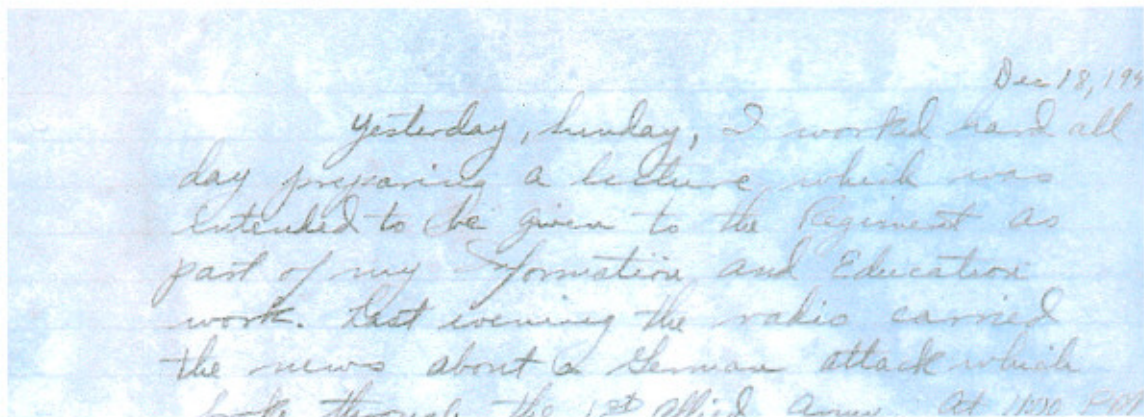 Dec 18, 194
Yesterday, Sunday, I worked hard all
day preparing a lecture which was
intended to be given to the Regiment as
part of my Information and Education
work. Last evening the radio carried
the news about a German attack which
through the 1st Allied Army. At